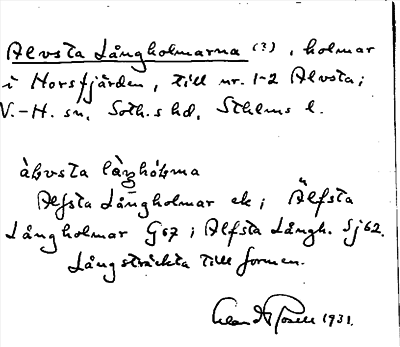 Alvsta Långholmarna (?), holmar
i Horsfjärden, till nr. 1-2 Alvsta;
V.-H. sn, Soth.s hd, Sthlms l.
Alfsta Långholmar ek; Älfsta
Långholmar G67; Alfsta Långh. Sj62.
Långsträckta till formen.
1931.